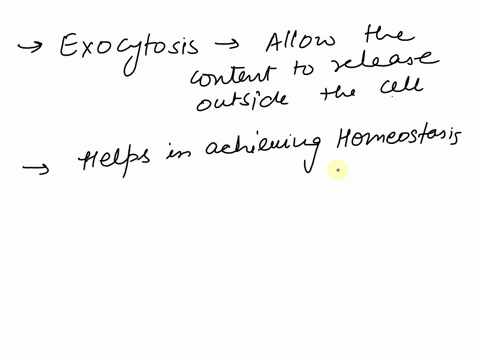 → Exocytosis → Allow the
content to release
outside the cell
→ Helps in achieving Homeostasis